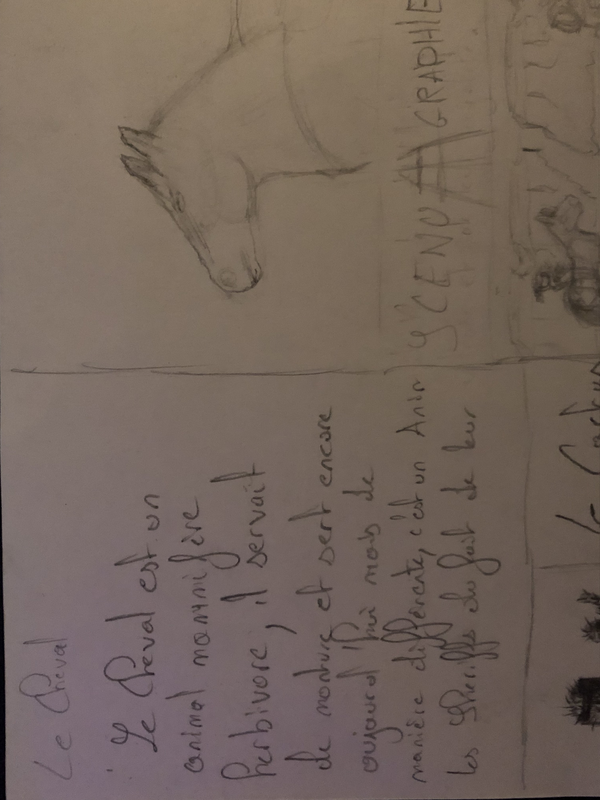 Le Cheval
Le Cheval est un
animal mammifère
herbivore, il servait
de monture et sert encore
aujourd'hui mais de
manière différente, c'est un Anim
les Sheriffs du fait de leur
SCENOAGRAPHIE
Le Cactus